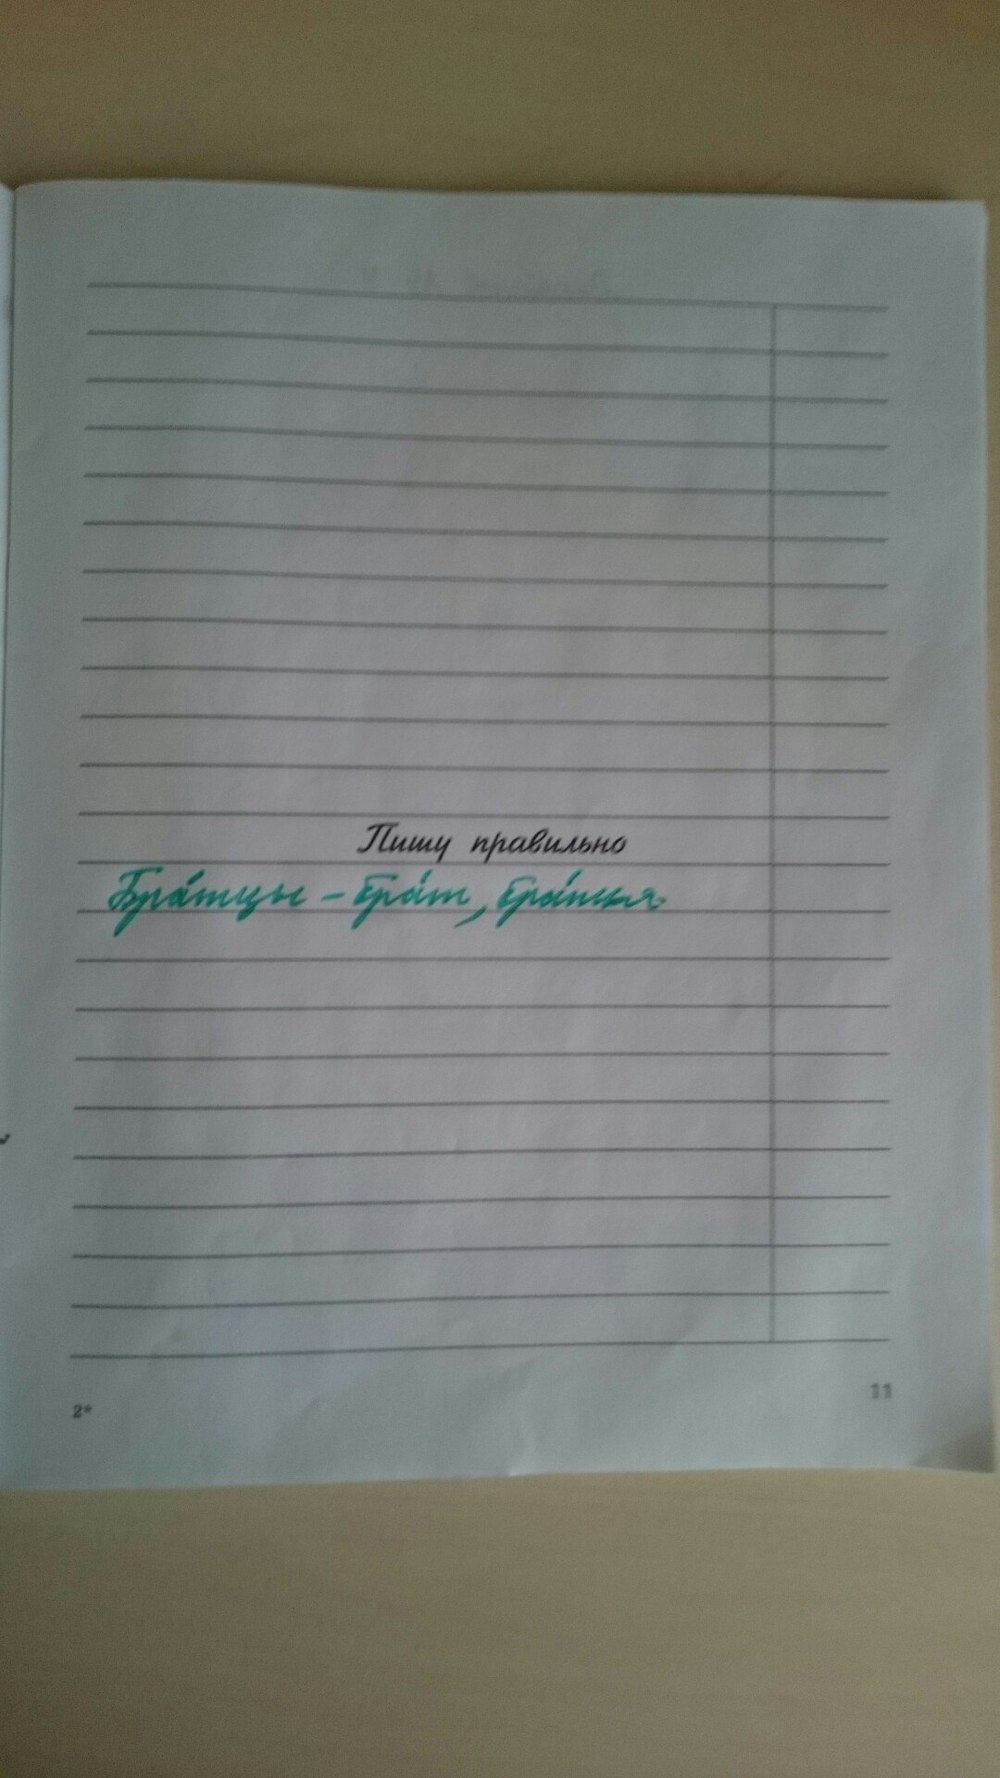 Пишу правильно
Бра́тцы – бра́т, бра́тия.
2*
11